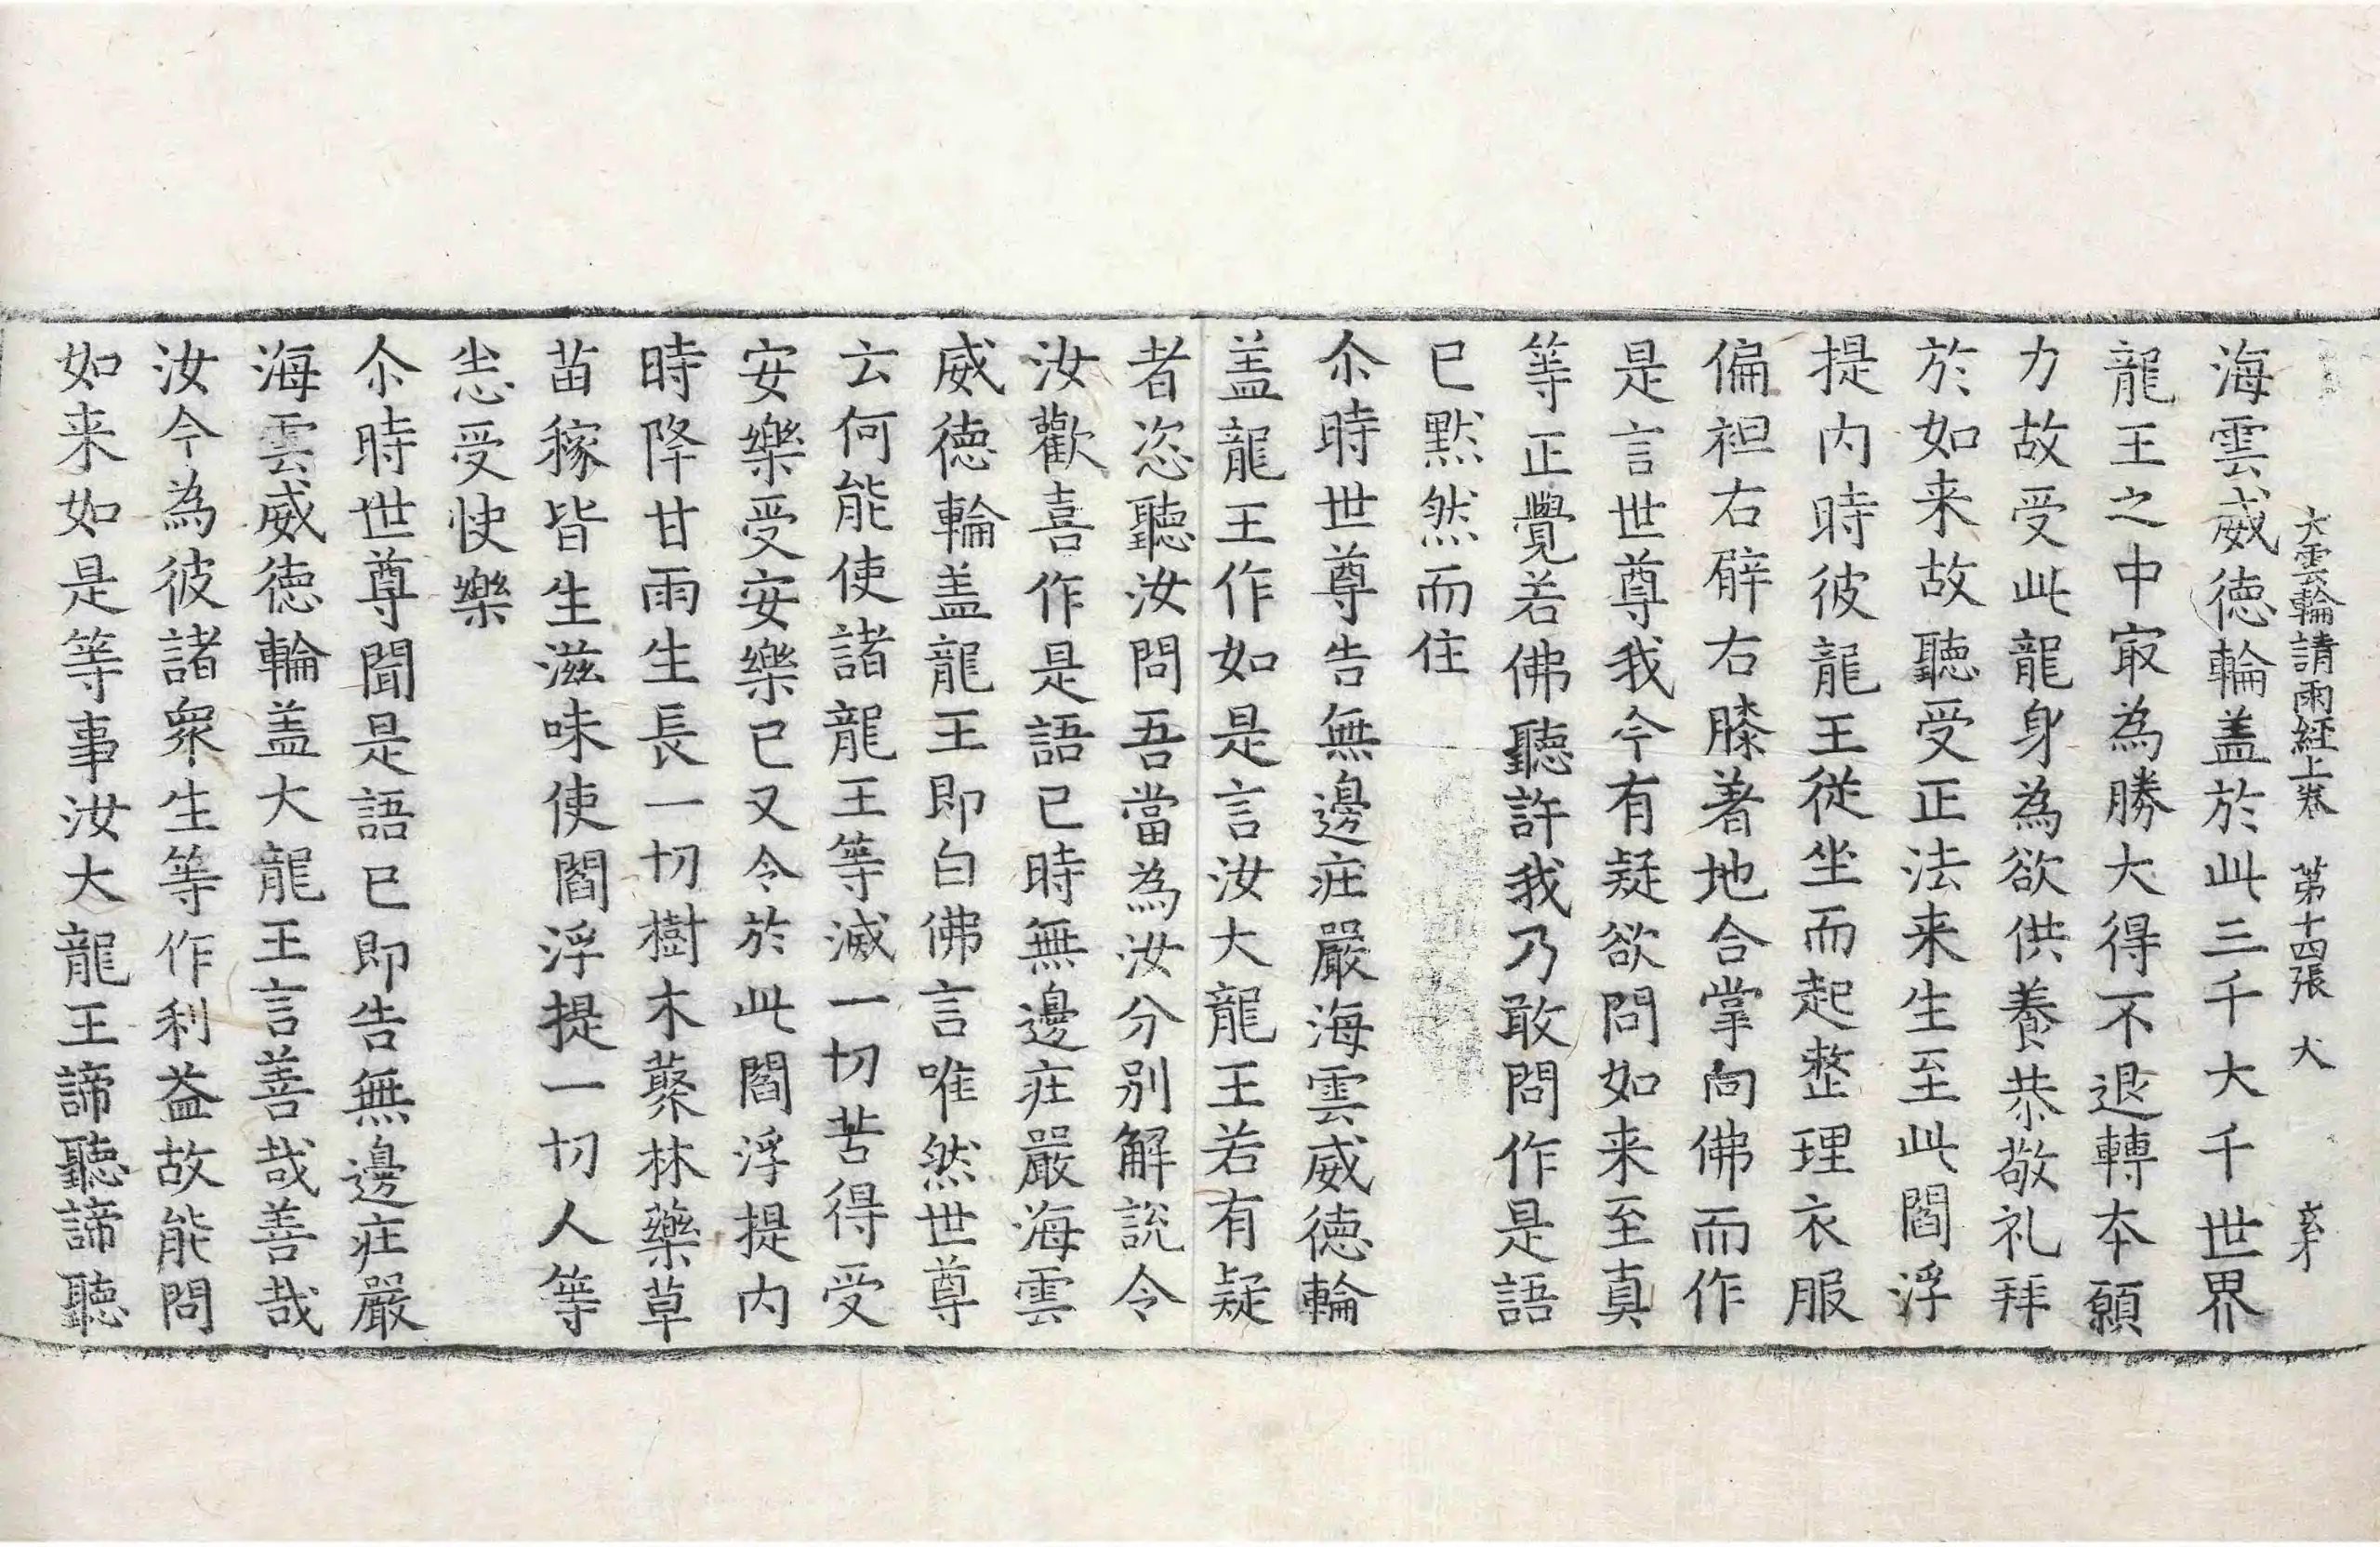 大雲輪請雨経上卷 第十四張 大
海雲威徳輪盖於此三千大千世界
龍王之中㝡為勝大得不退轉本願
力故受此龍身為欲供養恭敬礼拜
於如来故聽受正法来生至此閻浮
提内時彼龍王從坐而起整理衣服
偏袒右臂右膝著地合掌向佛而作
是言世尊我今有疑欲問如来至真
等正覺若佛聽許我乃敢問作是語
已黙然而住
尒時世尊告無邊疘嚴海雲威徳輪
盖龍王作如是言汝大龍王若有疑
者恣聽汝問吾當為汝分别解説令
汝歡喜作是語已時無邊疘嚴海雲
威徳輪盖龍王即白佛言唯然世尊
云何能使諸龍王等滅一切苦得受
安樂受安樂已又令於此閻浮提内
時降甘雨生長一切樹木藂林藥草
苗稼皆生滋味使閻浮提一切人等
𢘻受快樂
尒時世尊聞是語已即告無邊疘嚴
海雲威徳輪盖大龍王言善哉善哉
汝今為彼諸衆生等作利益故能問
如来如是等事汝大龍王諦聽諦聽